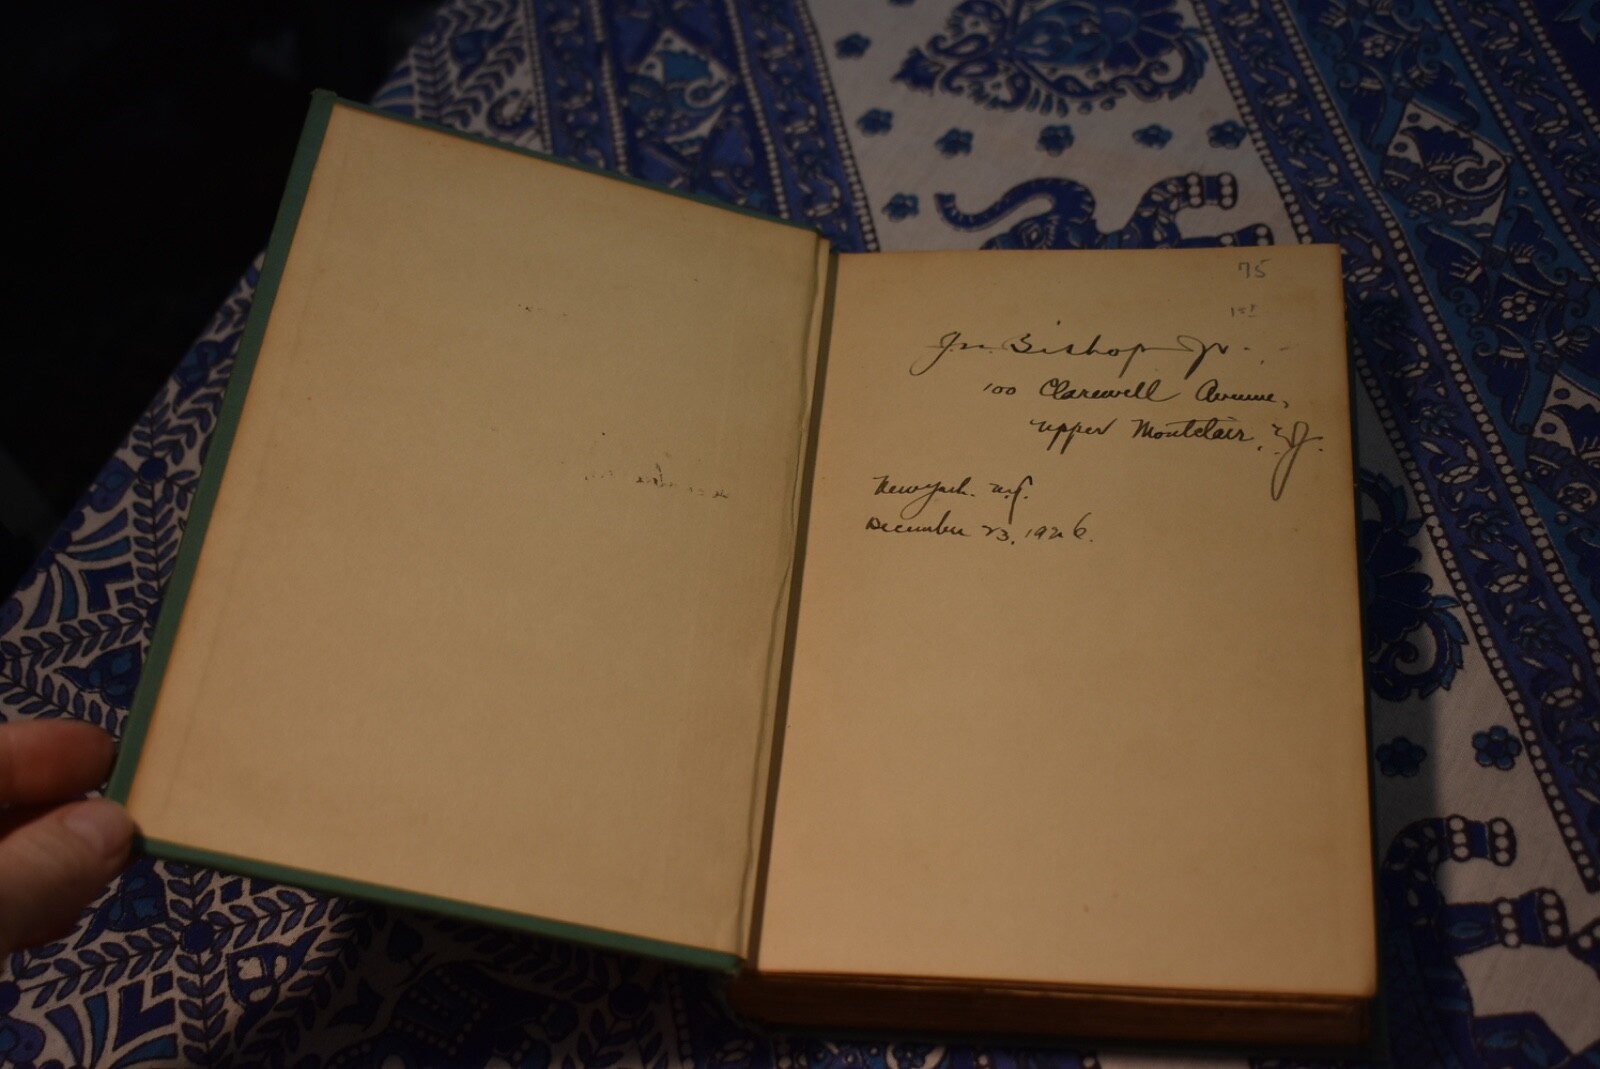 75
1st
Jn. Bishop Jr.
100 Clarewell Avenue,
Upper Montclair, N.J.
New York. N.Y.
December 23, 1926.